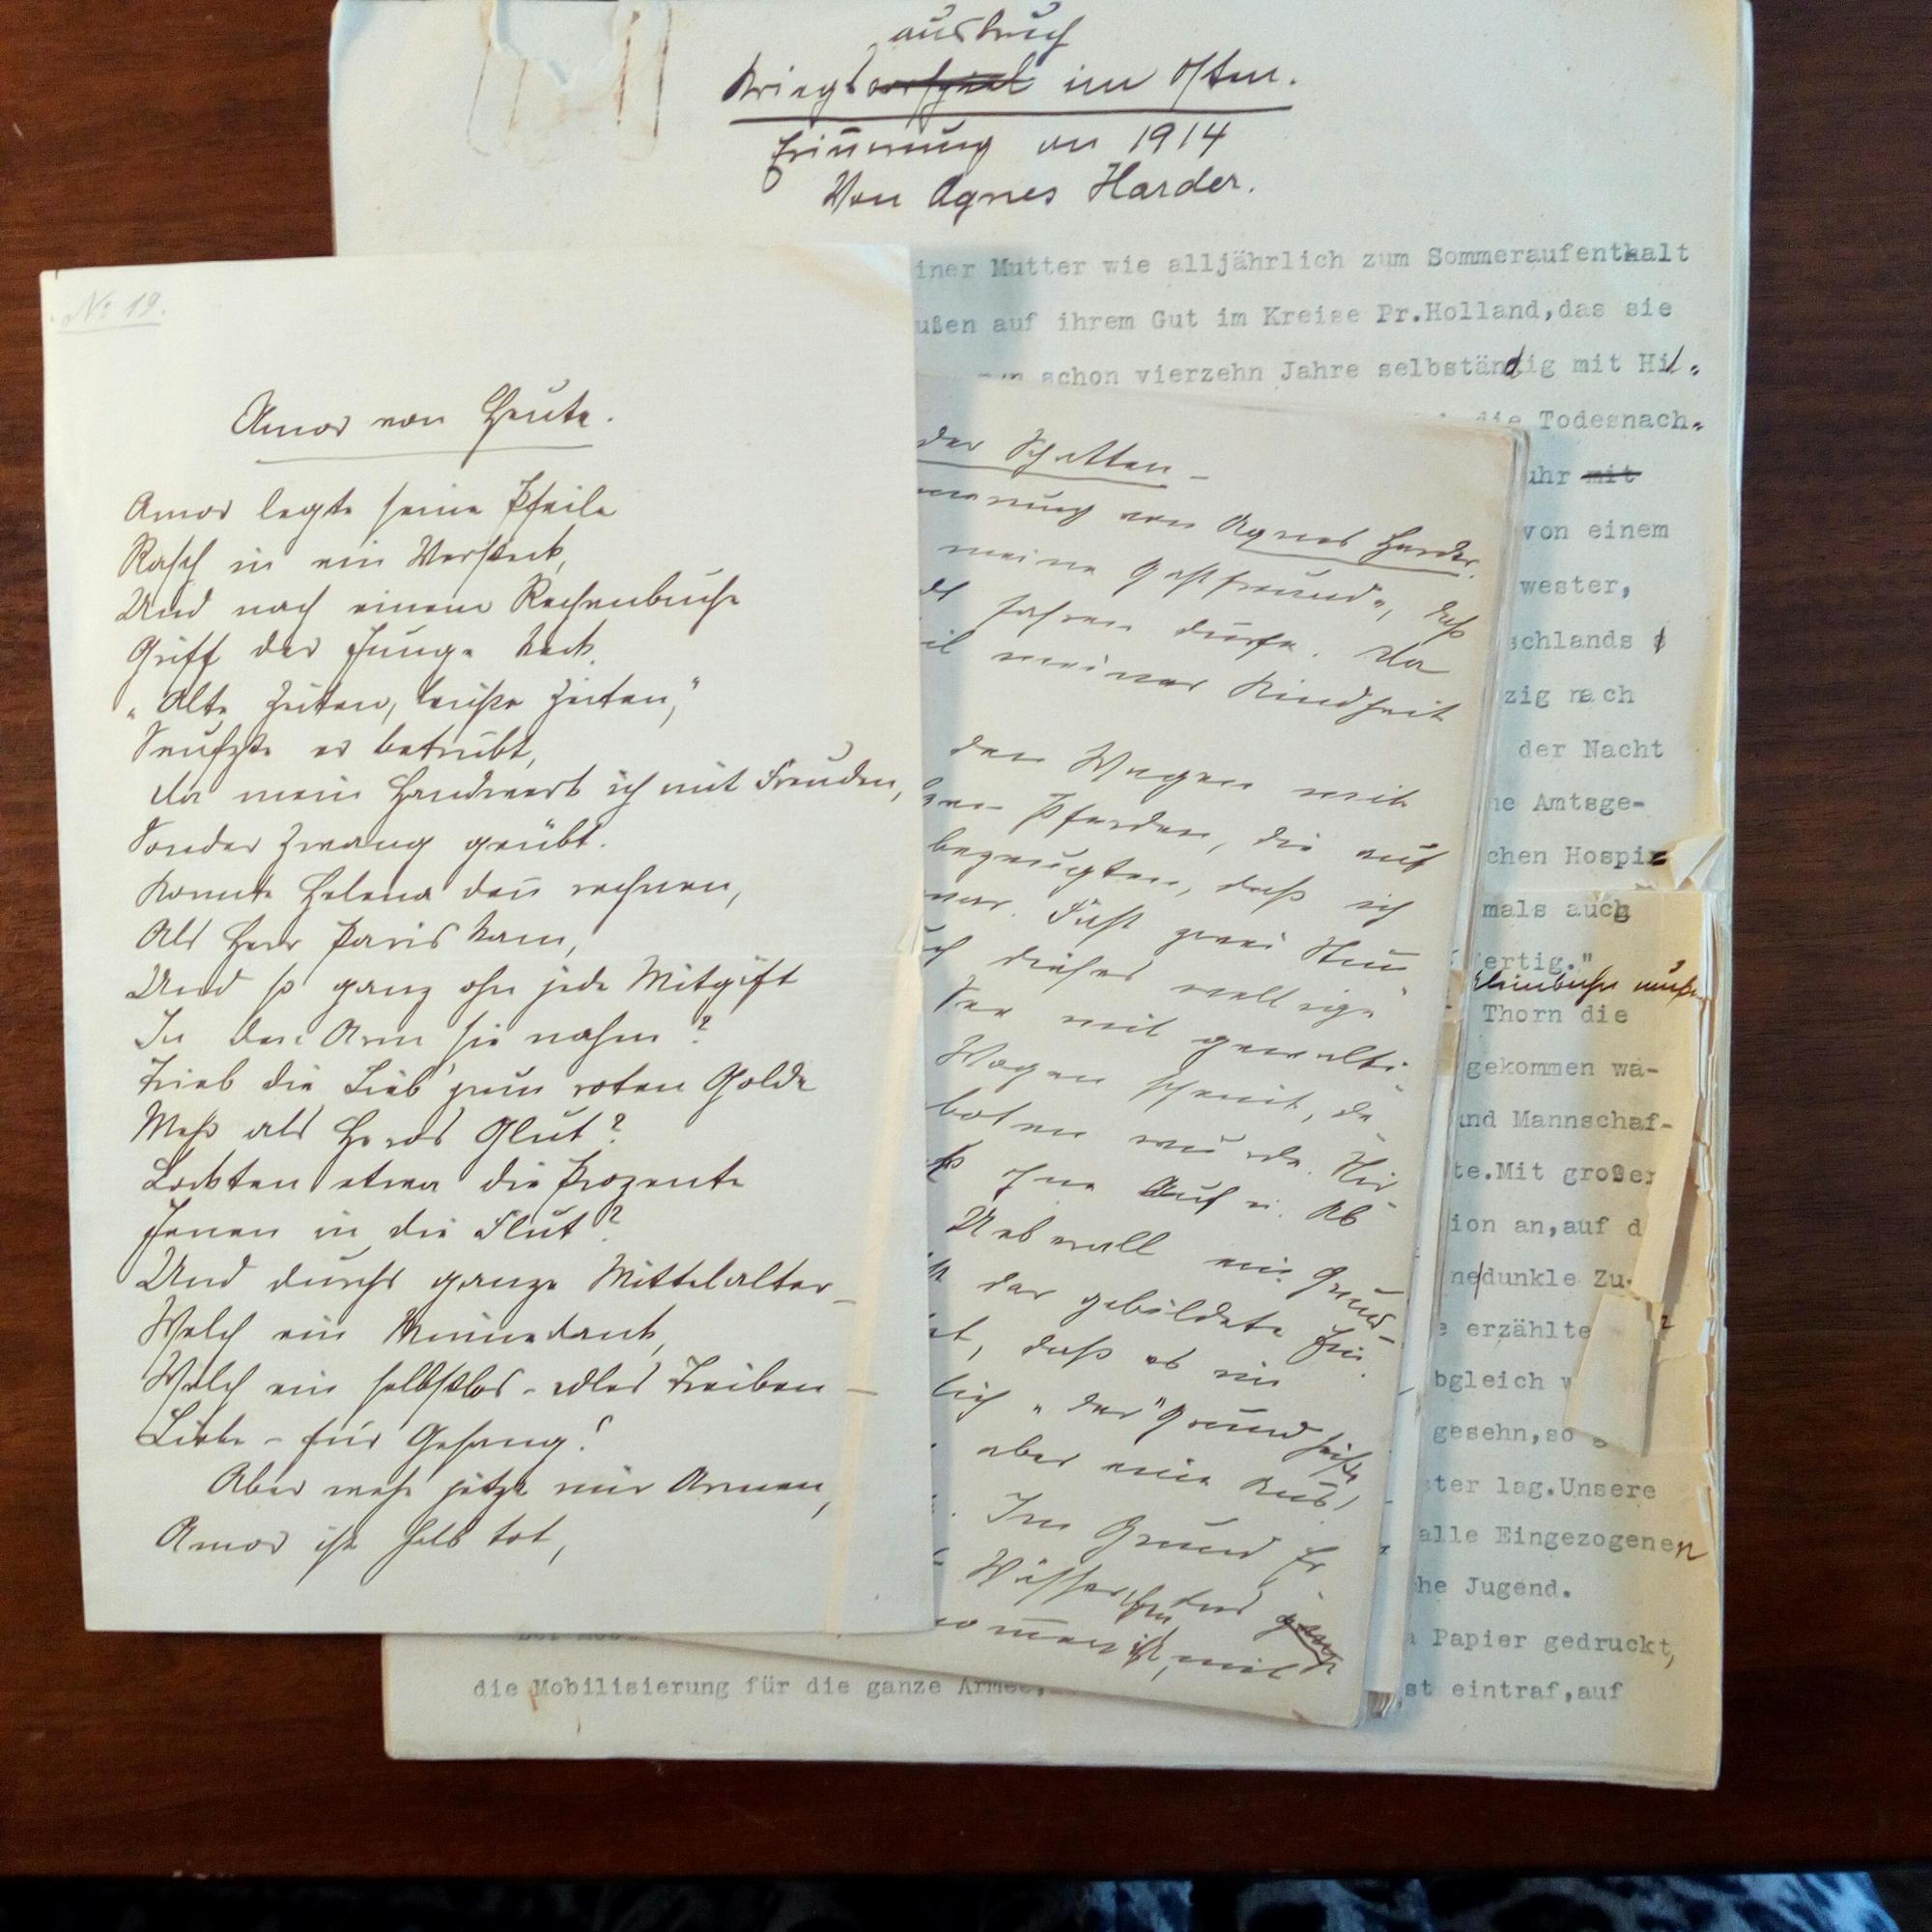 ausbruch
Kriegs im Osten.
Erinnerung an 1914
Von Agnes Harder.
iner Mutter wie alljährlich zum Sommeraufenthalt
ußen auf ihrem Gut im Kreise Pr.Holland,das sie
schon vierzehn Jahre selbständig mit Hil-
die Todesnach-
uhr mit
von einem
wester,
schlands
zig nach
der Nacht
he Amtsge-
chen Hospiz
mals auch
fertig."
Kleinbahn
Thorn die
gekommen wa-
und Mannschaf-
te.Mit großer
ion an,auf d
ne dunkle Zu-
e erzählte
bgleich
gesehn,so
ster lag.Unsere
alle Eingezogenen
he Jugend.
Papier gedruckt,
die Mobilisierung für die ganze Armee,
st eintraf,auf
No 19.
Amor von Heute.
Amor legte seine Pfeile
Rasch in ein Versteck,
Und nach einem Rechenbuche
Griff der Junge keck.
"Alte Zeiten, beußre Zeiten,"
Seufzte er betrübt,
Da mein Handwerk ich mit Freuden,
Sonder Zwang geübt.
Konnte Helena denn rechnen,
Als Herr Paris kam,
Und so ganz ohn jede Mitgift
In den Arm sie nahm?
Trieb die Lieb' zum roten Golde
Mehr als Heros Glut?
Lockten etwa die Prozente
Jenen in die Flut?
Und durchs ganze Mittelalter –
Welch ein Minnedank,
Welch ein selbstlos-edles Treiben –
Liebe – für Gesang!
Aber wehe jetzt mir Armen,
Amor ist halb tot,
der Schatten –
nnerung von Agnes Harder.
meine Gastfreunde, daß
fahren durfte. Da
il meiner Kindheit
den Wagen mit
Pferden, die auf
bezeugten, daß ich
war. Fast zwei Stun
ch dieses wellige
See mit gewalti-
Wogen schreit, da
boten wurde. Hier
Auf u. Ab
Ueberall ein Grund-
der gebildete
et, daß es ein
lich "der" Grund heißt
aber eine
Im Grund
Wasser
kommen ist, weil